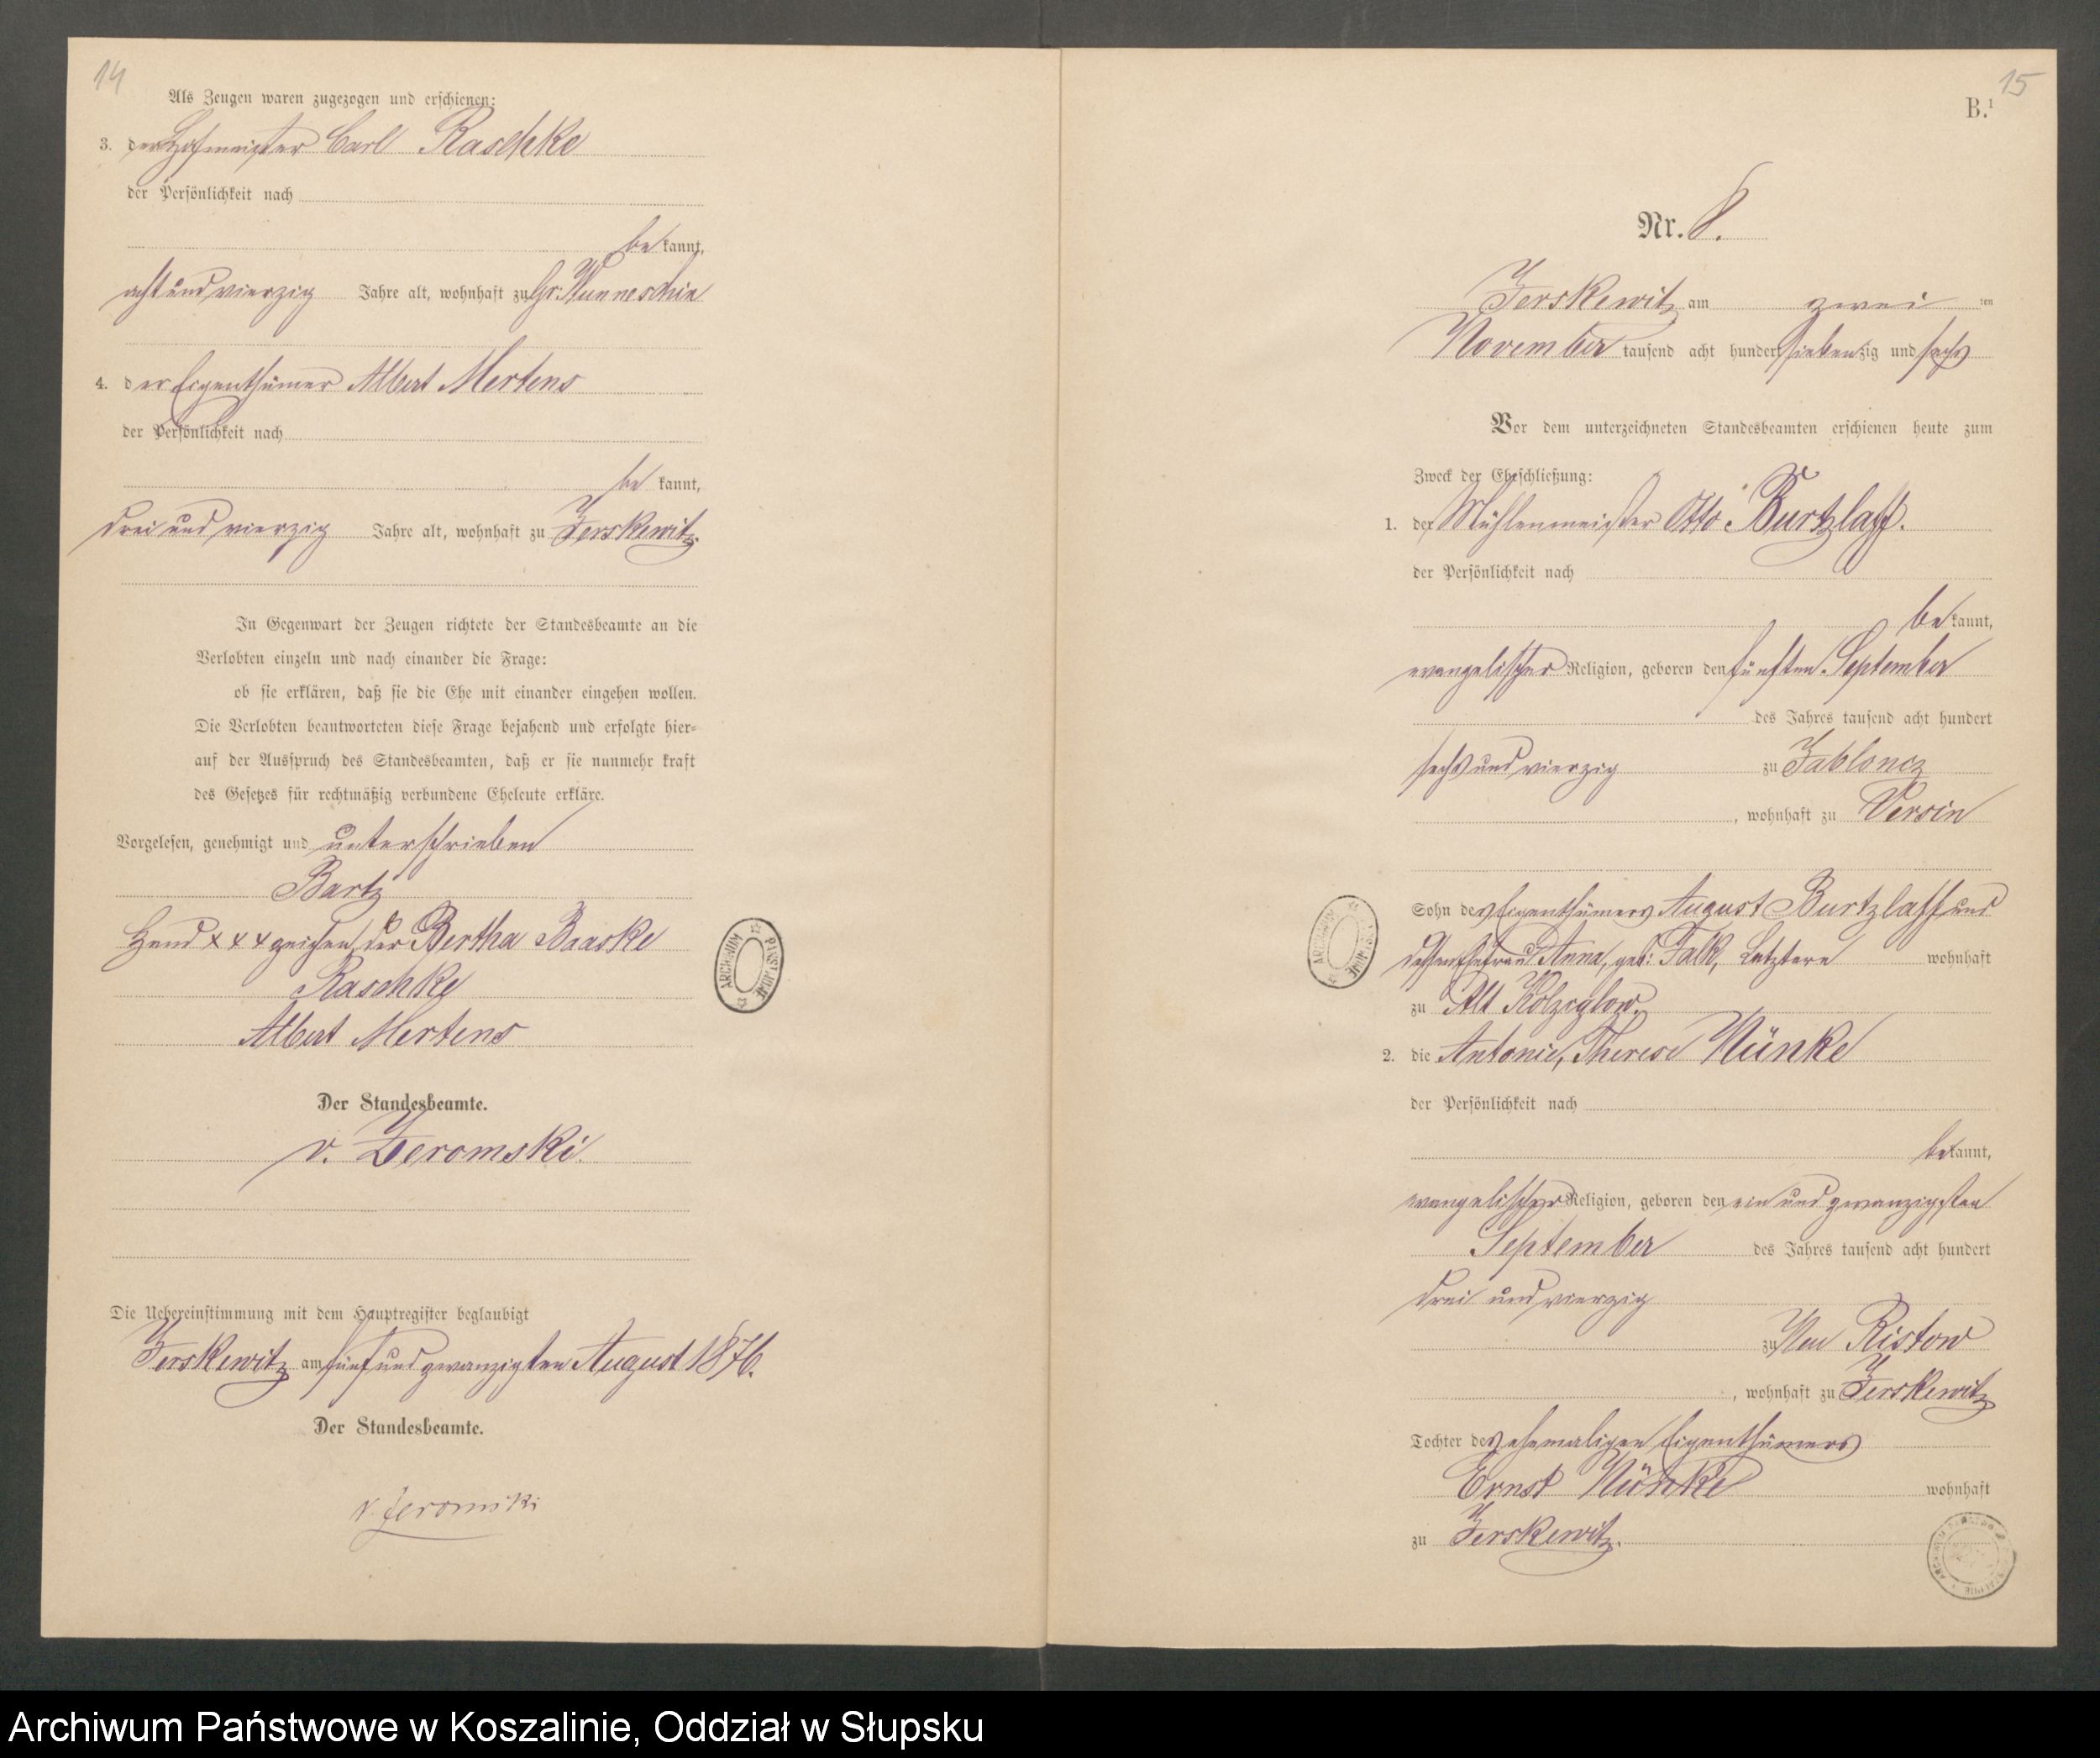 14
Als Zeugen waren zugezogen und erschienen:
3. der Hofmeister Carl Raschke
der Persönlichkeit nach
bekannt,
acht und vierzig Jahre alt, wohnhaft zu Gr. Wunneschin
4. der Eigenthümer Albert Mertens
der Persönlichkeit nach
be kannt,
drei und vierzig Jahre alt, wohnhaft zu Jerskewitz.
In Gegenwart der Zeugen richtete der Standesbeamte an die
Verlobten einzeln und nach einander die Frage:
ob sie erklären, daß sie die Ehe mit einander eingehen wollen.
Die Verlobten beantworteten diese Frage bejahend und erfolgte hier-
auf der Ausspruch des Standesbeamten, daß er sie nunmehr kraft
des Gesetzes für rechtmäßig verbundene Eheleute erkläre.
Vorgelesen, genehmigt und unterschrieben
Bartz
Hand x x x zeichen der Bertha Baaske
Raschke
Albert Mertens
Der Standesbeamte.
v. Zeromski.
Die Uebereinstimmung mit dem Hauptregister beglaubigt
Jerskewitz am fünf und zwanzigten August 1876.
Der Standesbeamte.
v. Zeromski
ARCHIWUM PAŃSTWOWE
15
B.1
Nr. 8.
Jerskewitz am zwei ten
November tausend acht hundert siebenzig und sechs
Vor dem unterzeichneten Standesbeamten erschienen heute zum
Zweck der Eheschließung:
1. der Mühlenmeister Otto Burtzlaff.
der Persönlichkeit nach
bekannt,
evangelischer Religion, geboren den fünften September
des Jahres tausend acht hundert
sechs und vierzig zu Jabloncz
, wohnhaft zu Versin
Sohn des Eigenthümers August Burtzlaff und
dessen Ehefrau Anna, geb: Falk, Letztere wohnhaft
zu Alt Kolziglow.
2. die Antonie, Therese Nünke
der Persönlichkeit nach
bekannt,
evangelischer Religion, geboren den ein und zwanzigsten
September des Jahres tausend acht hundert
drei und vierzig
zu Neu Ristow
, wohnhaft zu Jerskewitz
Tochter des ehemaligen Eigenthümers
Ernst Nünke wohnhaft
zu Jerskewitz.
ARCHIWUM PAŃSTWOWE
Archiwum Państwowe w Koszalinie, Oddział w Słupsku